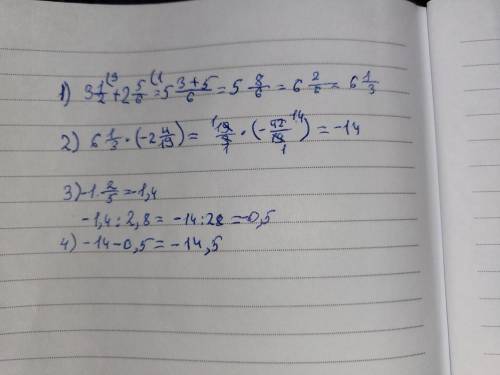 1) 3 1/2 (3 + 2 5/6 (1 = 5 3+5/6 = 5 8/6 = 6 2/6 = 6 1/3
2) 6 1/3 · (-2 4/19) = 19/3 · (-42/19) = -14
3) -1 2/5 = -1,4
-1,4 : 2,8 = -14 : 28 = -0,5
4) -14 - 0,5 = -14,5